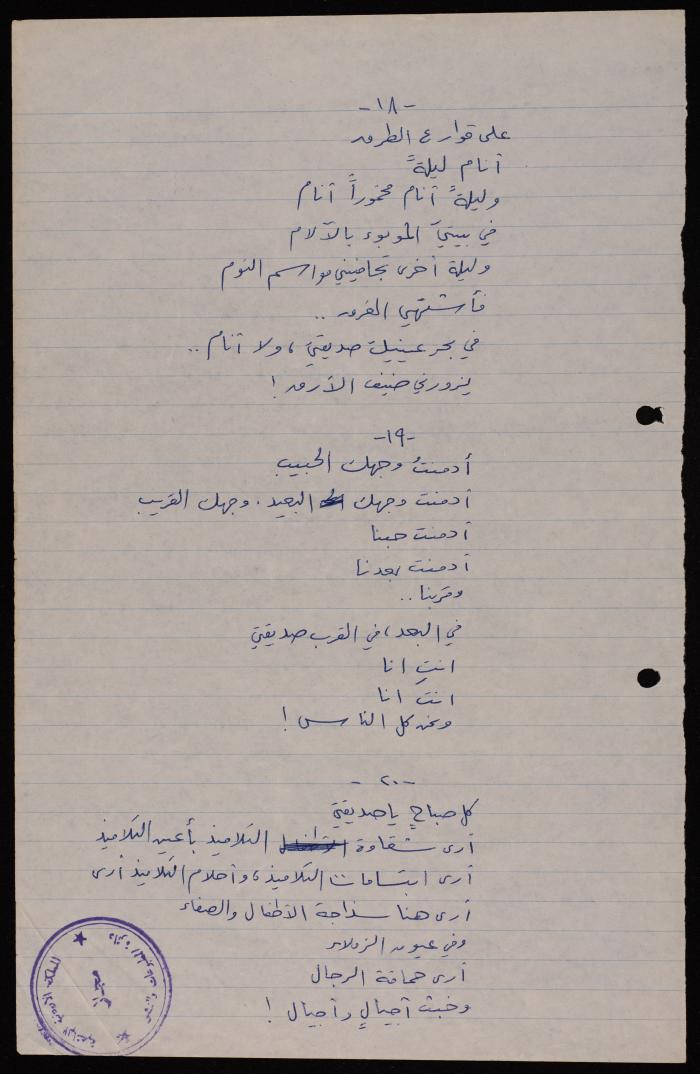 -١٨-
على قوارع الطرق
أنام ليلةً
وليلةً أنام مخموراً أنام
في بيتيَ الموبوء بالآلام
وليلة أخرى تجافيني مواسم النوم
فأشتهي الغرق ..
في بحر عينيك صديقتي، ولا أنام ..
يزورني ضيف الأرق !
-١٩-
أدمنتُ وجهك الحبيب
أدمنت وجهك البعيد . وجهك القريب
أدمنت حبنا
أدمنت بعدنا
وقربنا ..
في البعد، في القرب صديقتي
انتِ انا
انتَ انا
ونحن كل الناس !
-٢٠-
كل صباحٍ يا صديقتي
أرى شقاوة التلاميذ بأعين التلاميذ
أرى ابتسامات التلاميذ، وأحلام التلاميذ أرى
أرى هنا سذاجة الأطفال والصفاء
وفي عيون الزملاء
أرى حماقة الرجال
وخبث أجيالٍ وأجيال !
المملكة الأردنية الهاشمية
دائرة المطبوعات